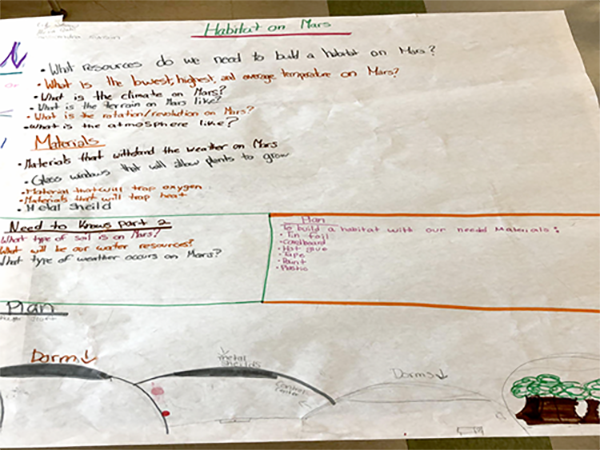 Habitat on Mars
• What resources do we need to build a habitat on Mars?
• What is the lowest, highest, and average temperature on Mars?
• What is the climate on Mars?
• What is the terrain on Mars like?
• What is the rotation/revolution on Mars?
• What is the atmosphere like?
Materials
• Materials that withstand the weather on Mars
• Glass windows that will allow plants to grow
• Material that will trap oxygen.
• Materials that will trap heat
• Metal sheild
Need to Knows part 2
What type of soil is on Mars?
What will be our water resources?
What type of weather occurs on Mars?
Plan
To build a habitat with our needed Materials:
• Tin foil
• Cardboard
• Hot glue
• Tape
• Paint
• Plastic
Plan
Dorms
metal sheilds
Dorms